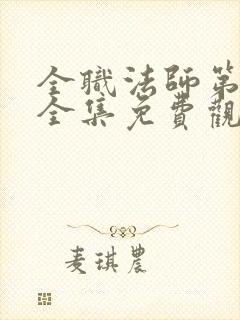 全職法師第
全集免費觀
麦琪農